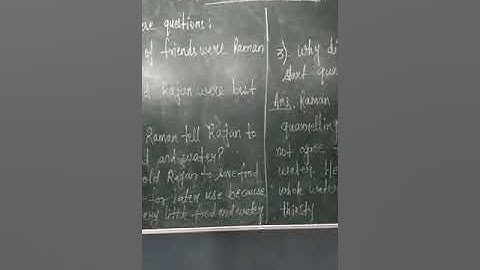 se questions:
of friends were Raman
d Rajan were best
Raman tell Rajan to
d and water?
old Rajan to save food
for later use because
ery little food and water
3) Why di
start qua
Ans. Raman
quarrelling
not agree
water. He
whole water
thirsty